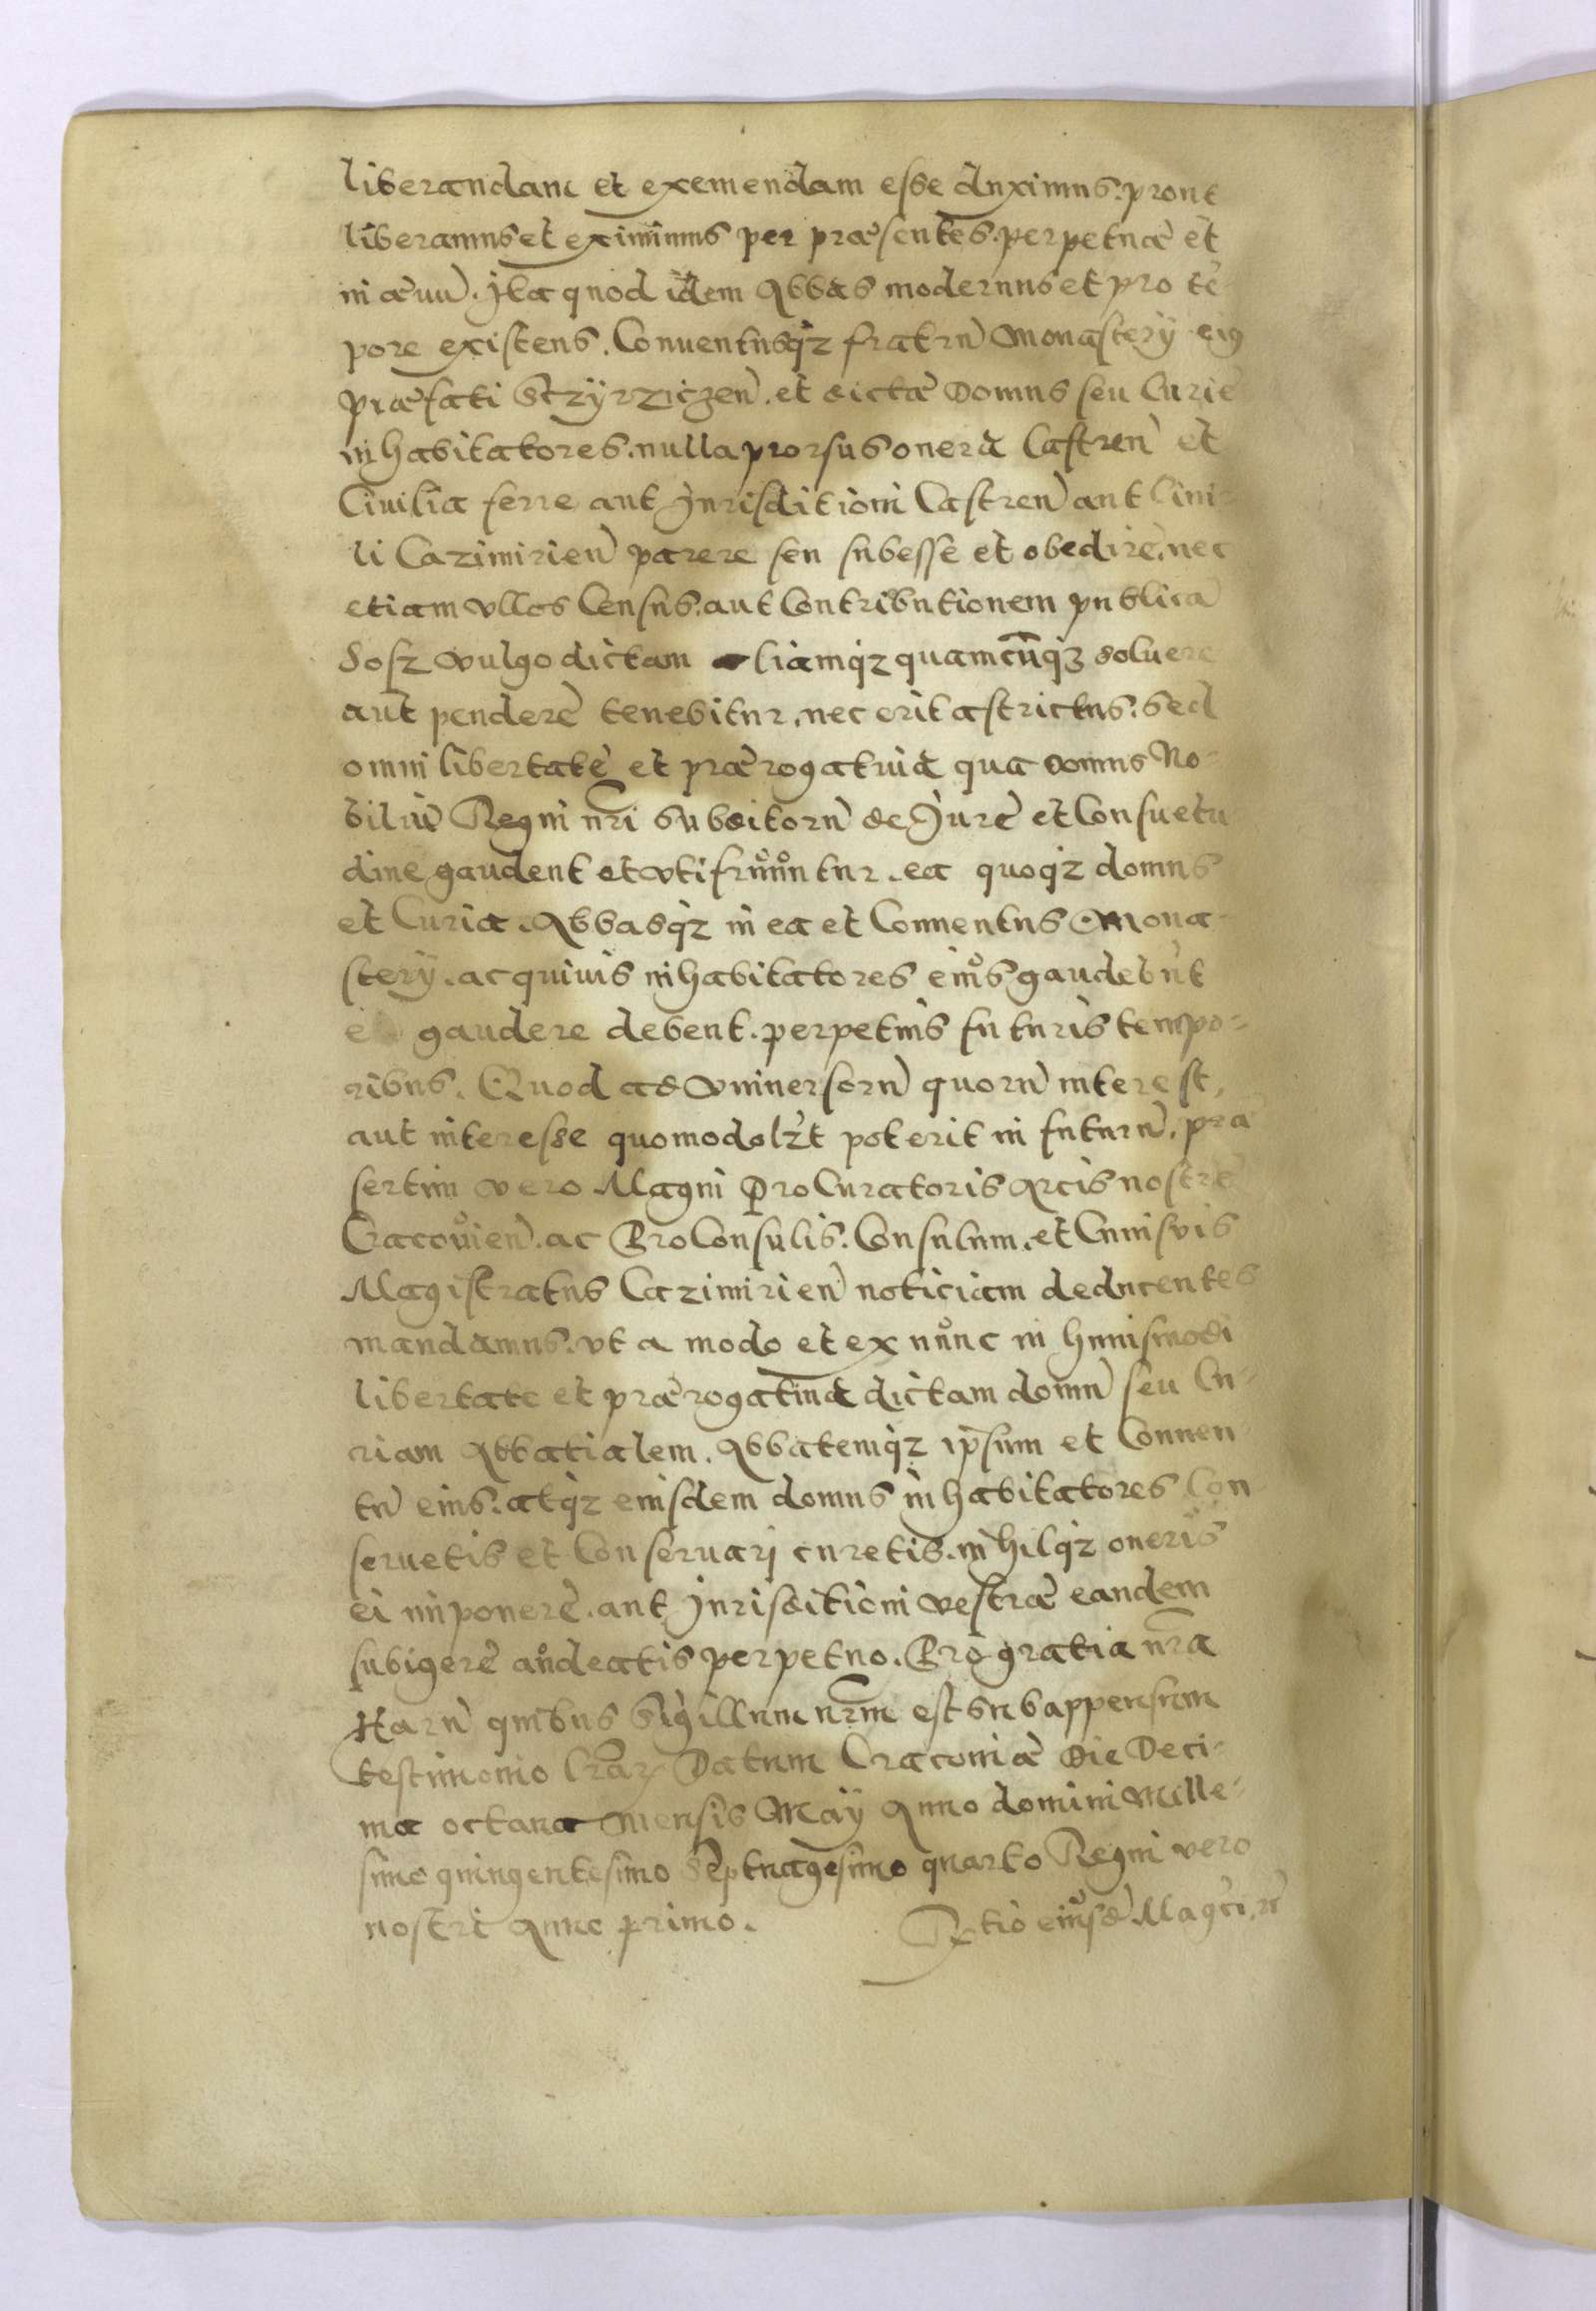 liberandam et exemendam esse duximus. prout
liberamus et eximimus per præsentes. perpetuæ et
in æuũ. Ita quod idem Abbas modernus et pro tẽ
pore existens. Conuentusqz fratrũ Monasterÿ eiꝯ
præfati Sczyrziczeñ. et dictæ Domus seu Curiẽ
inhabitatores. nulla prorsus onera Castreñ et
Ciuilia ferre aut Jurisditioni Castreñ aut Ciui-
li Cazimirieñ parere seu subesse et obedire, nec
etiam vllos Census. aut Contributionem publicã
Sosz vulgo dictam aliamqz quamcũqz soluere
aut pendere tenebitur. nec erit astrictus. Sed
omni libertate et prærogatiua qua domus No-
biliũ Regni nri subditorũ de Jure et Consuetu
dine gaudent et vtifruuntur. ea quoqz domus
et Curia. Abbasqz in ea et Conuentus Mona-
sterÿ. ac quiuis inhabitatores eius gaudebũt
et gaudere debent. perpetuis futuris tempo-
ribus. Quod ad vniuersorũ quorũ interest,
aut interesse quomodolz̃t poterit in futurũ. præ
sertim vero Magni Procuratoris Arcis nostrẽ
Cracouieñ. ac ProConsulis. Consulum. et Cuiusuis
Magistratus Cazimirieñ noticiam deducentes
mandamus. vt a modo et ex nunc in huiusmodi
libertate et prærogatiua dictam domũ seu Cu-
riam Abbatialem. Abbatemqz ip̃sum et Conuen-
tũ eius. atqz eiusdem domus inhabitatores Con-
seruetis et Conseruarj curetis. nihilqz oneris
ei imponere. aut Jurisditioni vestræ eandem
subigere audeatis perpetuo. Pro gratia nr̃a
Harũ quibus Sigillum nr̃m est subappensum
testimonio lr̃aꝝ Datum Cracouiæ die Deci-
ma octaua mensis Maÿ Anno domini Mille-
simo quingentesimo Septuagesimo quarto Regni vero
nostri Anno primo. Rtio eiusd̃ Magci. ꝛ̃